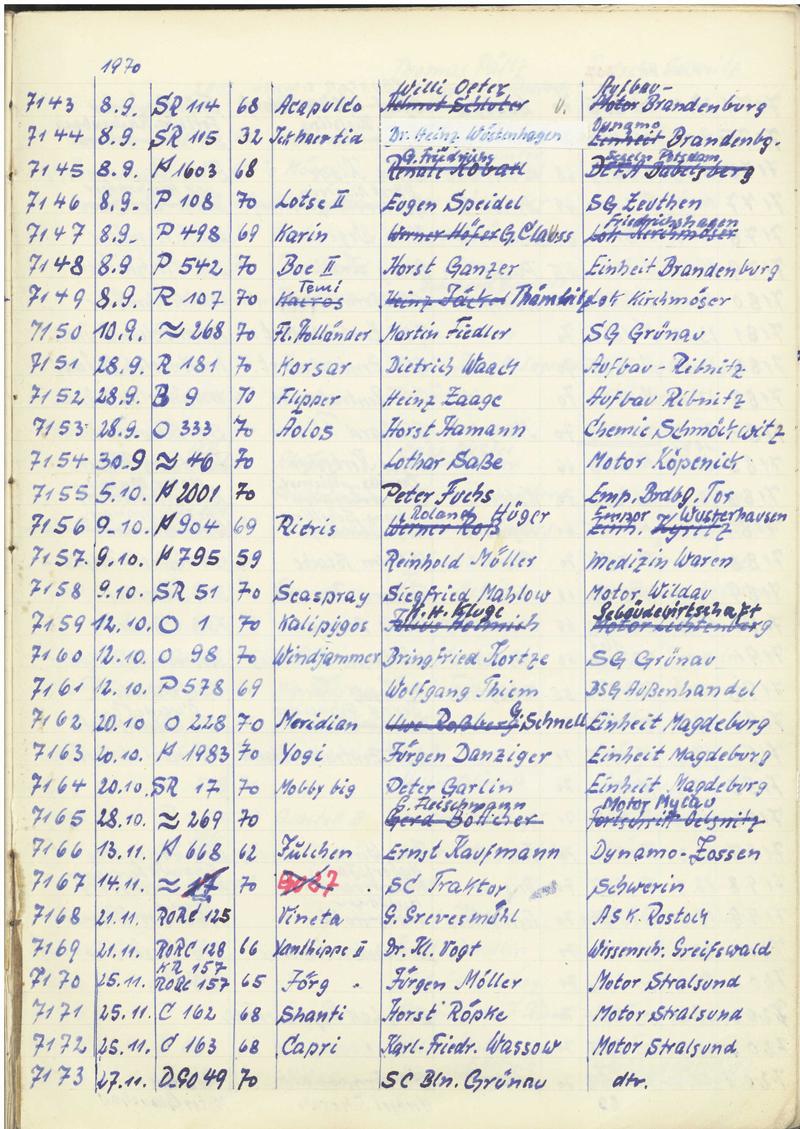 1970
Willi Oeter Aufbau-
7143 8.9. SR 114 68 Acapulco Helmut Schlüter v. Motor Brandenburg
Dynamo
7144 8.9. SR 115 32 Dr. Heinz Wüstenhagen Einheit Brandenbg.
G. Friedrichs Potsdam
7145 8.9. H 1603 68 Renate DEFA Babelsberg
7146 8.9. P 108 70 Lotse II Eugen Speidel SG Zeuthen
Friedrichshagen
7147 8.9. P 498 69 Karin Werner Höfer G. Clauss Lok Kirchmöser
7148 8.9 P 542 70 Boe II Horst Ganzer Einheit Brandenburg
Temi
7149 8.9. R 107 70 Kairos Heinz Jäckel Lok Kirchmöser
7150 10.9. ≈ 268 70 Fl. Holländer Martin Fiedler SG Grünau
7151 28.9. R 181 70 Korsar Dietrich Waack Aufbau - Ribnitz
7152 28.9. B 9 70 Flipper Heinz Zaage Aufbau Ribnitz
7153 28.9. O 333 70 Äolos Horst Hamann Chemie Schmöckwitz
7154 30.9 ≈ 46 70 Lothar Saße Motor Köpenick
7155 5.10. H 2001 70 Peter Fuchs Emp. Brdbg. Tor
Roland Hüger Empor Wusterhausen
7156 9.10. H 904 69 Werner Roß Einh. Kyritz
7157. 9.10. H 795 59 Reinhold Möller Medizin Waren
7158 9.10. SR 51 70 Seaspray Siegfried Mahlow Motor Wildau
H. H. Kluge Gebäudewirtschaft
7159 12.10. O 1 70 Kalipygos Julius Helmich Motor Lichtenberg
7160 12.10. O 98 70 Windjammer Bringfried Kortze SG Grünau
7161 12.10. P 578 69 Wolfgang Thiem BSG Außenhandel
7162 20.10 O 228 70 Meridian Uwe Roßberg G. Schnell Einheit Magdeburg
7163 20.10. H 1983 70 Yogi Jürgen Danziger Einheit Magdeburg
7164 20.10. SR 17 70 Mobby big Peter Garlin Einheit Magdeburg
G. Fleischmann Motor Mylau
7165 28.10. ≈ 269 70 Gerd Böttcher Fortschritt Oelsnitz
7166 13.11. H 668 62 Julchen Ernst Kaufmann Dynamo-Zossen
7167 14.11. ≈ 70 SC Traktor Schwerin
7168 21.11. RORC 125 Vineta G. Grevesmühl ASK. Rostock
7169 21.11. RORC 128 66 Xanthippe II Dr. Kl. Vogt Wissensch. Greifswald
KR 157
7170 25.11. RORC 157 65 Jörg Jürgen Möller Motor Stralsund
7171 25.11. C 162 68 Shanti Horst Röpke Motor Stralsund
7172 25.11. C 163 68 Capri Karl-Friedr. Wassow Motor Stralsund
7173 27.11. D.GO 49 70 SC Bln. Grünau dtr.